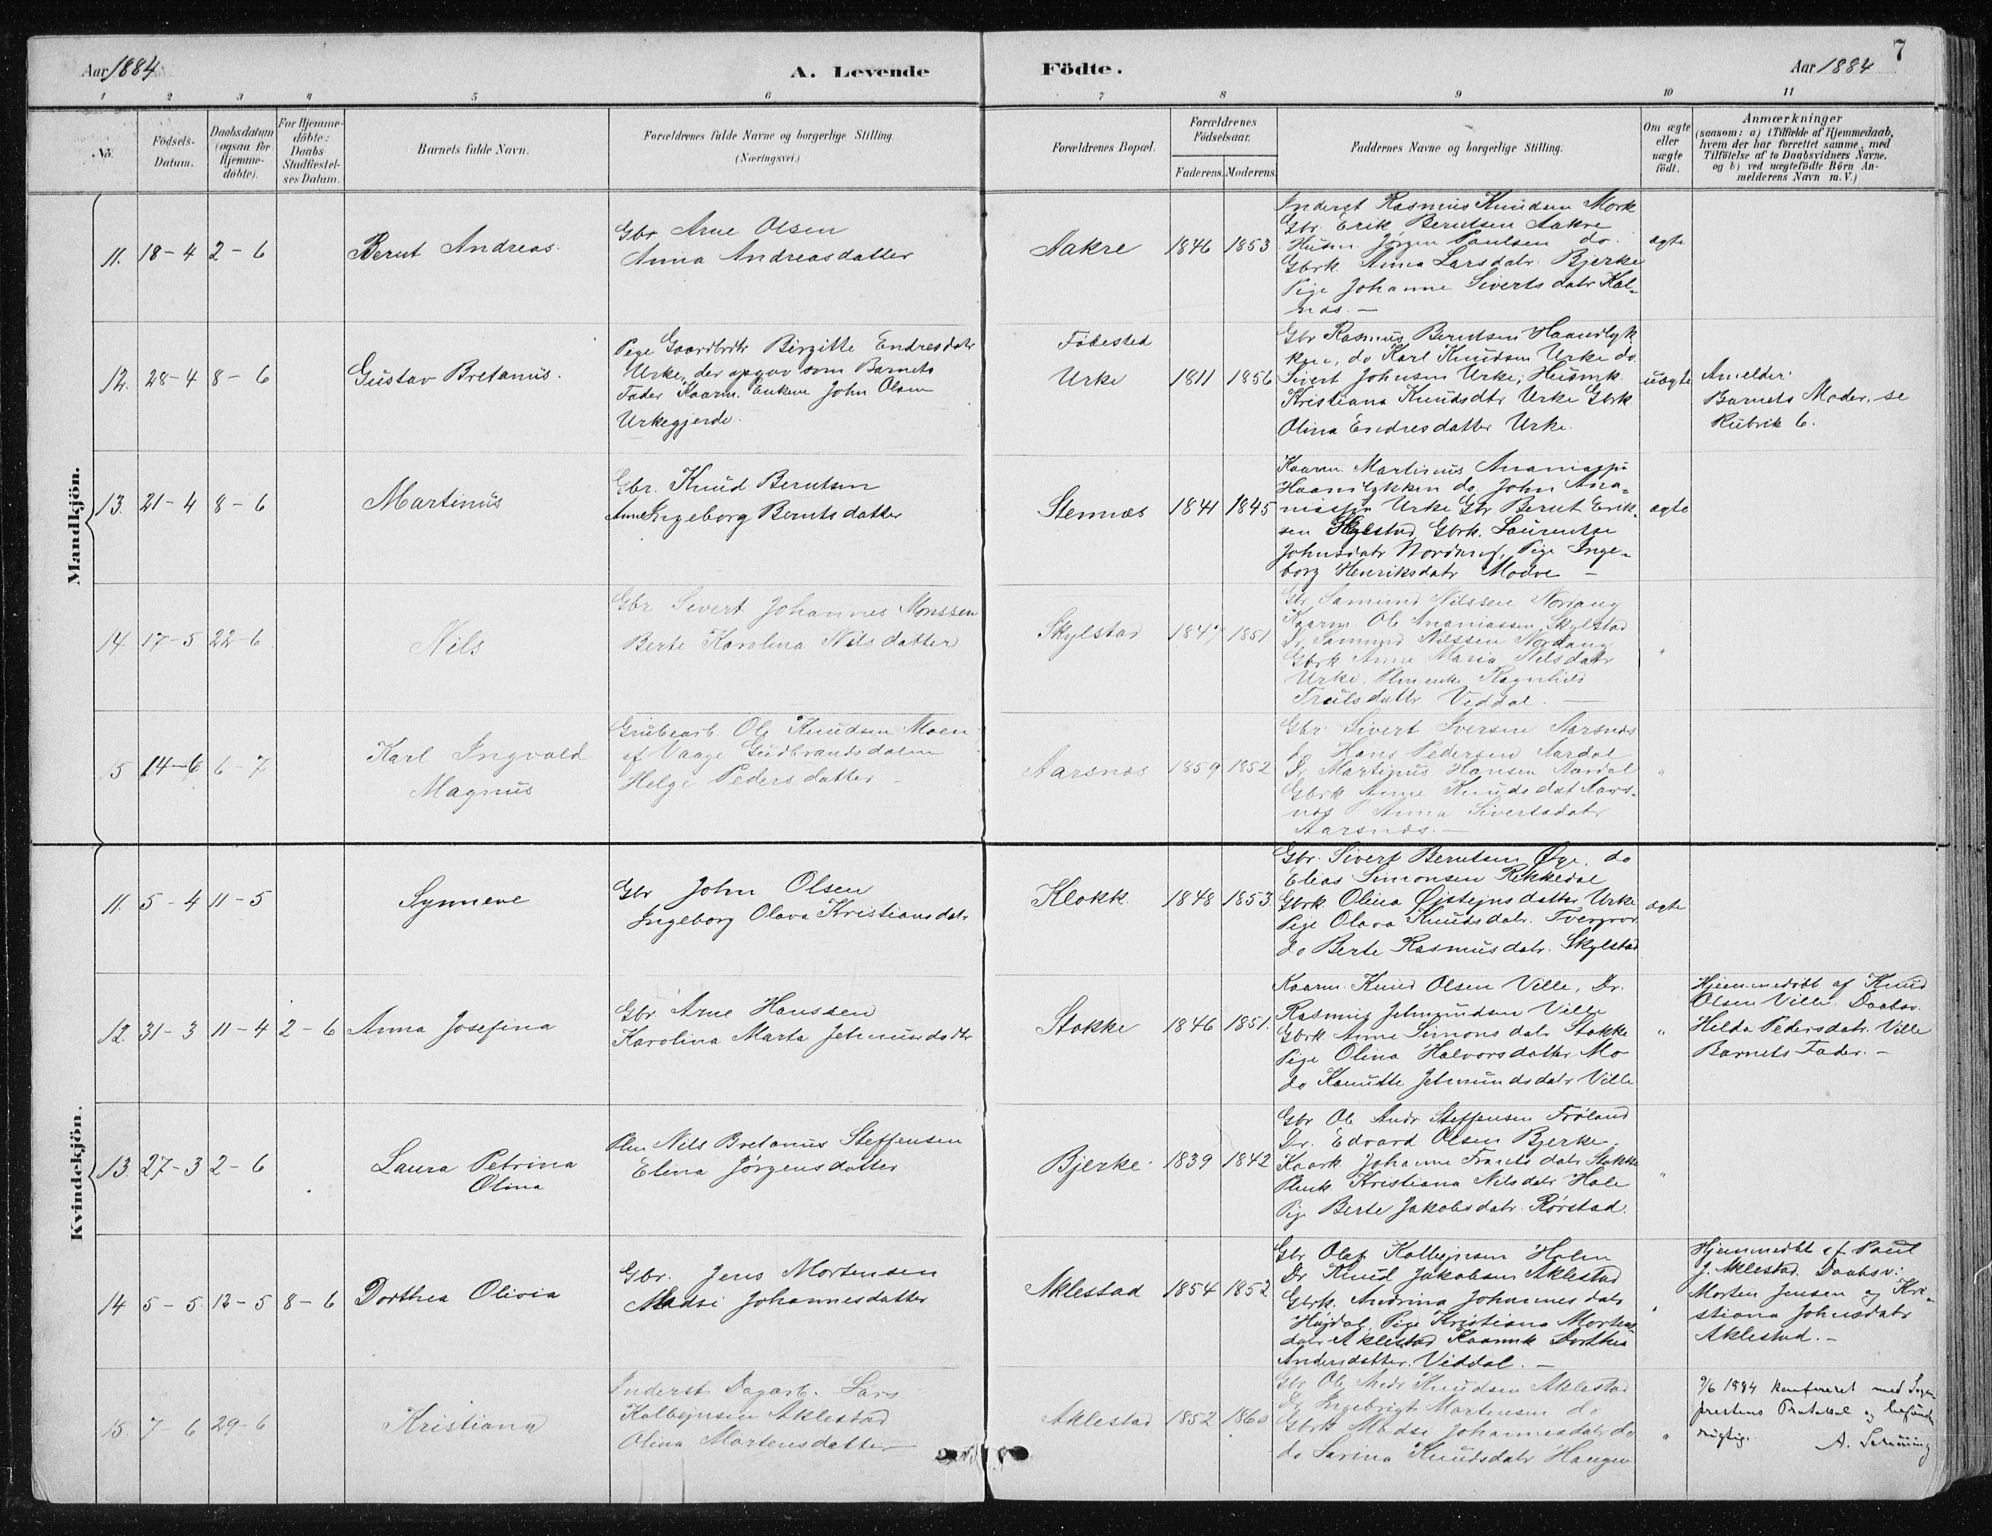 7
Aar 1884
A. Levende
Födte.
Aar 1884
1 2 3 4 5 6 7 8 9 10 11
No.
Födsels-
Datum.
Daabsdatum
(ogsaa for
Hjemme-
döbte).
For Hjemme-
döbte:
Daabs-
Stadfæstel-
ses Datum.
Barnets fulde Navn.
Forældrenes fulde Navne og borgerlige Stilling.
(Næringsvei.)
Forældrenes Bopæl.
Forældrenes
Födselsaar.
Faderens. Moderens.
Faddernes Navne og borgerlige Stilling.
Om ægte
eller
uægte
födt.
Anmærkninger
(saasom: a) i Tilfælde af Hjemmedaab,
hvem der har forrettet samme, med
Tilföielse af to Daabsvidners Navne,
og b) ved uægtefödte Börn An-
melderens Navn m. V.)
Mandkjön.
11. 18-4 2-6
Bernt Andreas.
Gbr Arne Olsen
Anna Andreasdatter
Aakre 1846 1853
Inderst Rasmus Knudsen Mork
Gbr. Erik Berntsen Aakre
Husm Jørgen Paulsen do.
Gbrk. Anna Larsdatr. Bjerke
Pige Johanne Sivertsdatr Kal-
næs. —
ægte
12. 28-4 8-6
Gustav Bretanus.
Pige Gaardbrdtr Birgitte Endresdatr
Urke, der opgav som Barnets
Fader Kaarm. Enkem John Olsen
Urkegjerde.
Fødested
Urke 1811 1856
Gbr Rasmus Berntsen Haanslyk
ken, do Karl Knudsen Urke do.
Sivert Johnsen Urke, Husmk.
Kristiana Knudsdtr Urke Gbrk
Olina Endresdatter Urke.
uægte
Anmelder:
Barnets Moder, se
Rubrik 6.
13. 21-4 8-6
Martinus
Gbr. Knud Berntsen
Anne Ingeborg Berntsdatter
Stennæs 1841 1845
Kaarm. Martinus Ananiassen
Haanslykken do. John Ana-
niassen Urke Gbr Bernt Erik-
sen Skylstad, Gbrk. Laurentse
Johnsdatr Nordang, Pige Inge-
borg Henriksdatr Modve —
ægte
14. 17-5 22-6
Nils
Gbr Sivert Johannes Monssen
Berte Karolina Nilsdatter
Skylstad 1847 1851
Gbr Samund Nilssen Nordang
Kaarm Ole Ananiassen Skylstad
Dr. Samund Nilssen Nordang
Gbrk Anne Maria Nilsdatr
Urke, Plmenke Ragnhild
Truls datter Viddal. —
"
5 14-6 6-7
Karl Ingvald
Magnus
Grubearb. Ole Knudsen Moen
af Vaage Gudbrandsdalen
Helge Pedersdatter —
Aarsnæs 1859 1852
Gbr Sivert Iversen Aarsnæs
do Hans Pedersen Aardal
Dr. Martinus Hansen Aardal
Gbrk Anne Knudsdat Aars-
næs P Anna Sivertsdatr
Aarsnæs. —
"
Kvindekjön.
11. 5-4 11-5
Synneve
Gbr John Olsen
Ingeborg Olava Kristiansdatr
Klokk 1848 1853.
Gbr. Sivert Berntsen Øye, do
Elias Simonsen Rekkedal
Gbrk Olina Øisteinsdatter Urke
Pige Olava Knudsdatr. Tvergrov
do Berte Rasmusdatr. Skylstad
ægte
12. 31-3 11-4 2-6
Anna Josefina
Gbr Arne Hanssen
Karolina Marta Jetmundsdtr
Stokke 1846 1851.
Kaarm. Knud Olsen Ville, Dr.
Rasmus Jetmundsen Ville
Gbrk Anne Simonsdatr Stokke
Pige Olina Halvorsdatter Mo
do Kanutte Jetmundsdatr Ville
"
Hjemmedøbt af Knud
Olsen Ville. Daabsv.
Hilda Pedersdatr. Ville
Barnets Fader. —
13. 27-3 2-6
Laura Petrina
Olina
Plm Nils Bretanus Steffensen
Elina Jørgensdatter
Bjerke. 1839 1842
Gbr Ole Andr. Steffensen Frøland
Dr. Edvard Olsen Bjerke
Kaark Johanne Frantsdatr Stokke
Plmk. Kristiana Nilsdatr Hole
Pige Berte Jakobsdatr. Rørstad.
"
14 5-5 12-5 8-6
Dorthea Olivia
Gbr. Jens Mortensen
Madsi Johannesdatter
Aklestad 1854 1852
Gbr Olaf Kolbejnsen Holen
Dr Knud Jakobsen Aklestad
Gbrk. Andrina Johannesdatr
Højdal. Pige Kristiana Mortens-
datr Aklestad Kaarmk Dorthea
Andersdatter. Viddal. —
"
Hjemmedøbt af Paul
J. Aklestad. Daabsv:
Morten Jensen og Kri-
stiana Johnsdatr
Aklestad. —
15. 7-6 29-6
Kristiana
Inderst Dagarb. Lars
Kolbejnsen Aklestad
Olina Mortensdatter
Aklestad 1852 1860
Gbr Ole Andr Knudsen Aklestad
Dr Ingebrigt Martinsen do
Gbrk Madsi Johannesdatr do
do Sarina Knudsdatr Haugen
"
9/6 1894 konfereret med Sogne-
prestens Protokol og befunden
rigtig.